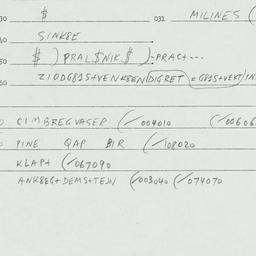 30 $ 031 MILINES (
40 SINK8E
50 $ ) PRAL$NIK$ ) - PRAC+...
60 ZIODG81S+VENK8EN (DIGRET) = G81S+VEKT/IN
CIMBREGVASER (/004010 (/00606
PINE QAP BIR (/108020
KLAP+ (/067090
ANK8EG+DEMS+TEJN (/003040 (/074070